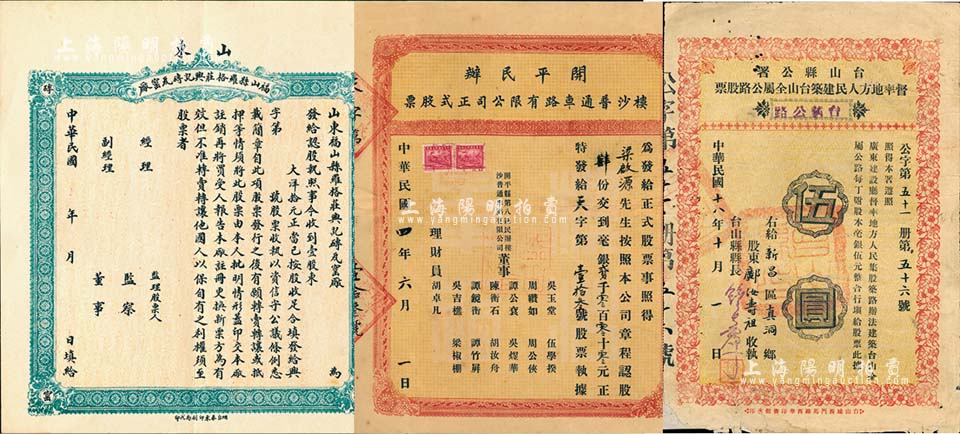 上海陽明拍賣
www.yangmingauction.com
山東
福山縣羅格莊興記磚瓦窰廠
磚
瓦
窰
廠
為
發給認股執照事今收到壹股東
山東福山縣羅格莊興記磚瓦窰廠
大洋拾元正當已按股收足合填發給興
字第 號股票收執以資信守公議條例悉
載簡章自此項股票發行之後有願轉賣轉讓或抵
押等情須將此股票由本人批明情形蓋印交本廠
註銷再將買受人報告本廠註冊更換新票方為有
效但不准轉賣轉讓他國人以保自有之利權須至
股票者
經理
副經理
監理股票人
監察
董事
中華民國 年 月 日填給
開平民辦
樓沙普通車路有限公司正式股票
為發給正式股票事照得
梁啟源先生按照本公司章程認股
肆份交到毫銀貳千零百零十零元正
特發給天字第壹拾叁號股票執據
開平縣第八區民辦樓
沙普通車路有限公司
董事
吳玉堂
伍學揆
周纘如
周公俠
譚公裳
吳煜華
陳衡石
胡汝舟
譚鏡衡
譚竹屏
吳吉樵
梁椒棚
理財員胡卓凡
中華民國四年六月一日
台山縣公署
督率地方人民建築台山全屬公路股票
台新公路
公字第五十一冊第五十六號
照得本署遵照
廣東建設廳督率地方人民集股築路辦法建築台山全
屬公路每丁附股本毫銀伍元整合行填給股票此據
伍圓
右給新昌區真洞鄉
股東鄺汝壽祖收執
台山縣縣長
中華民國十八年十月一日